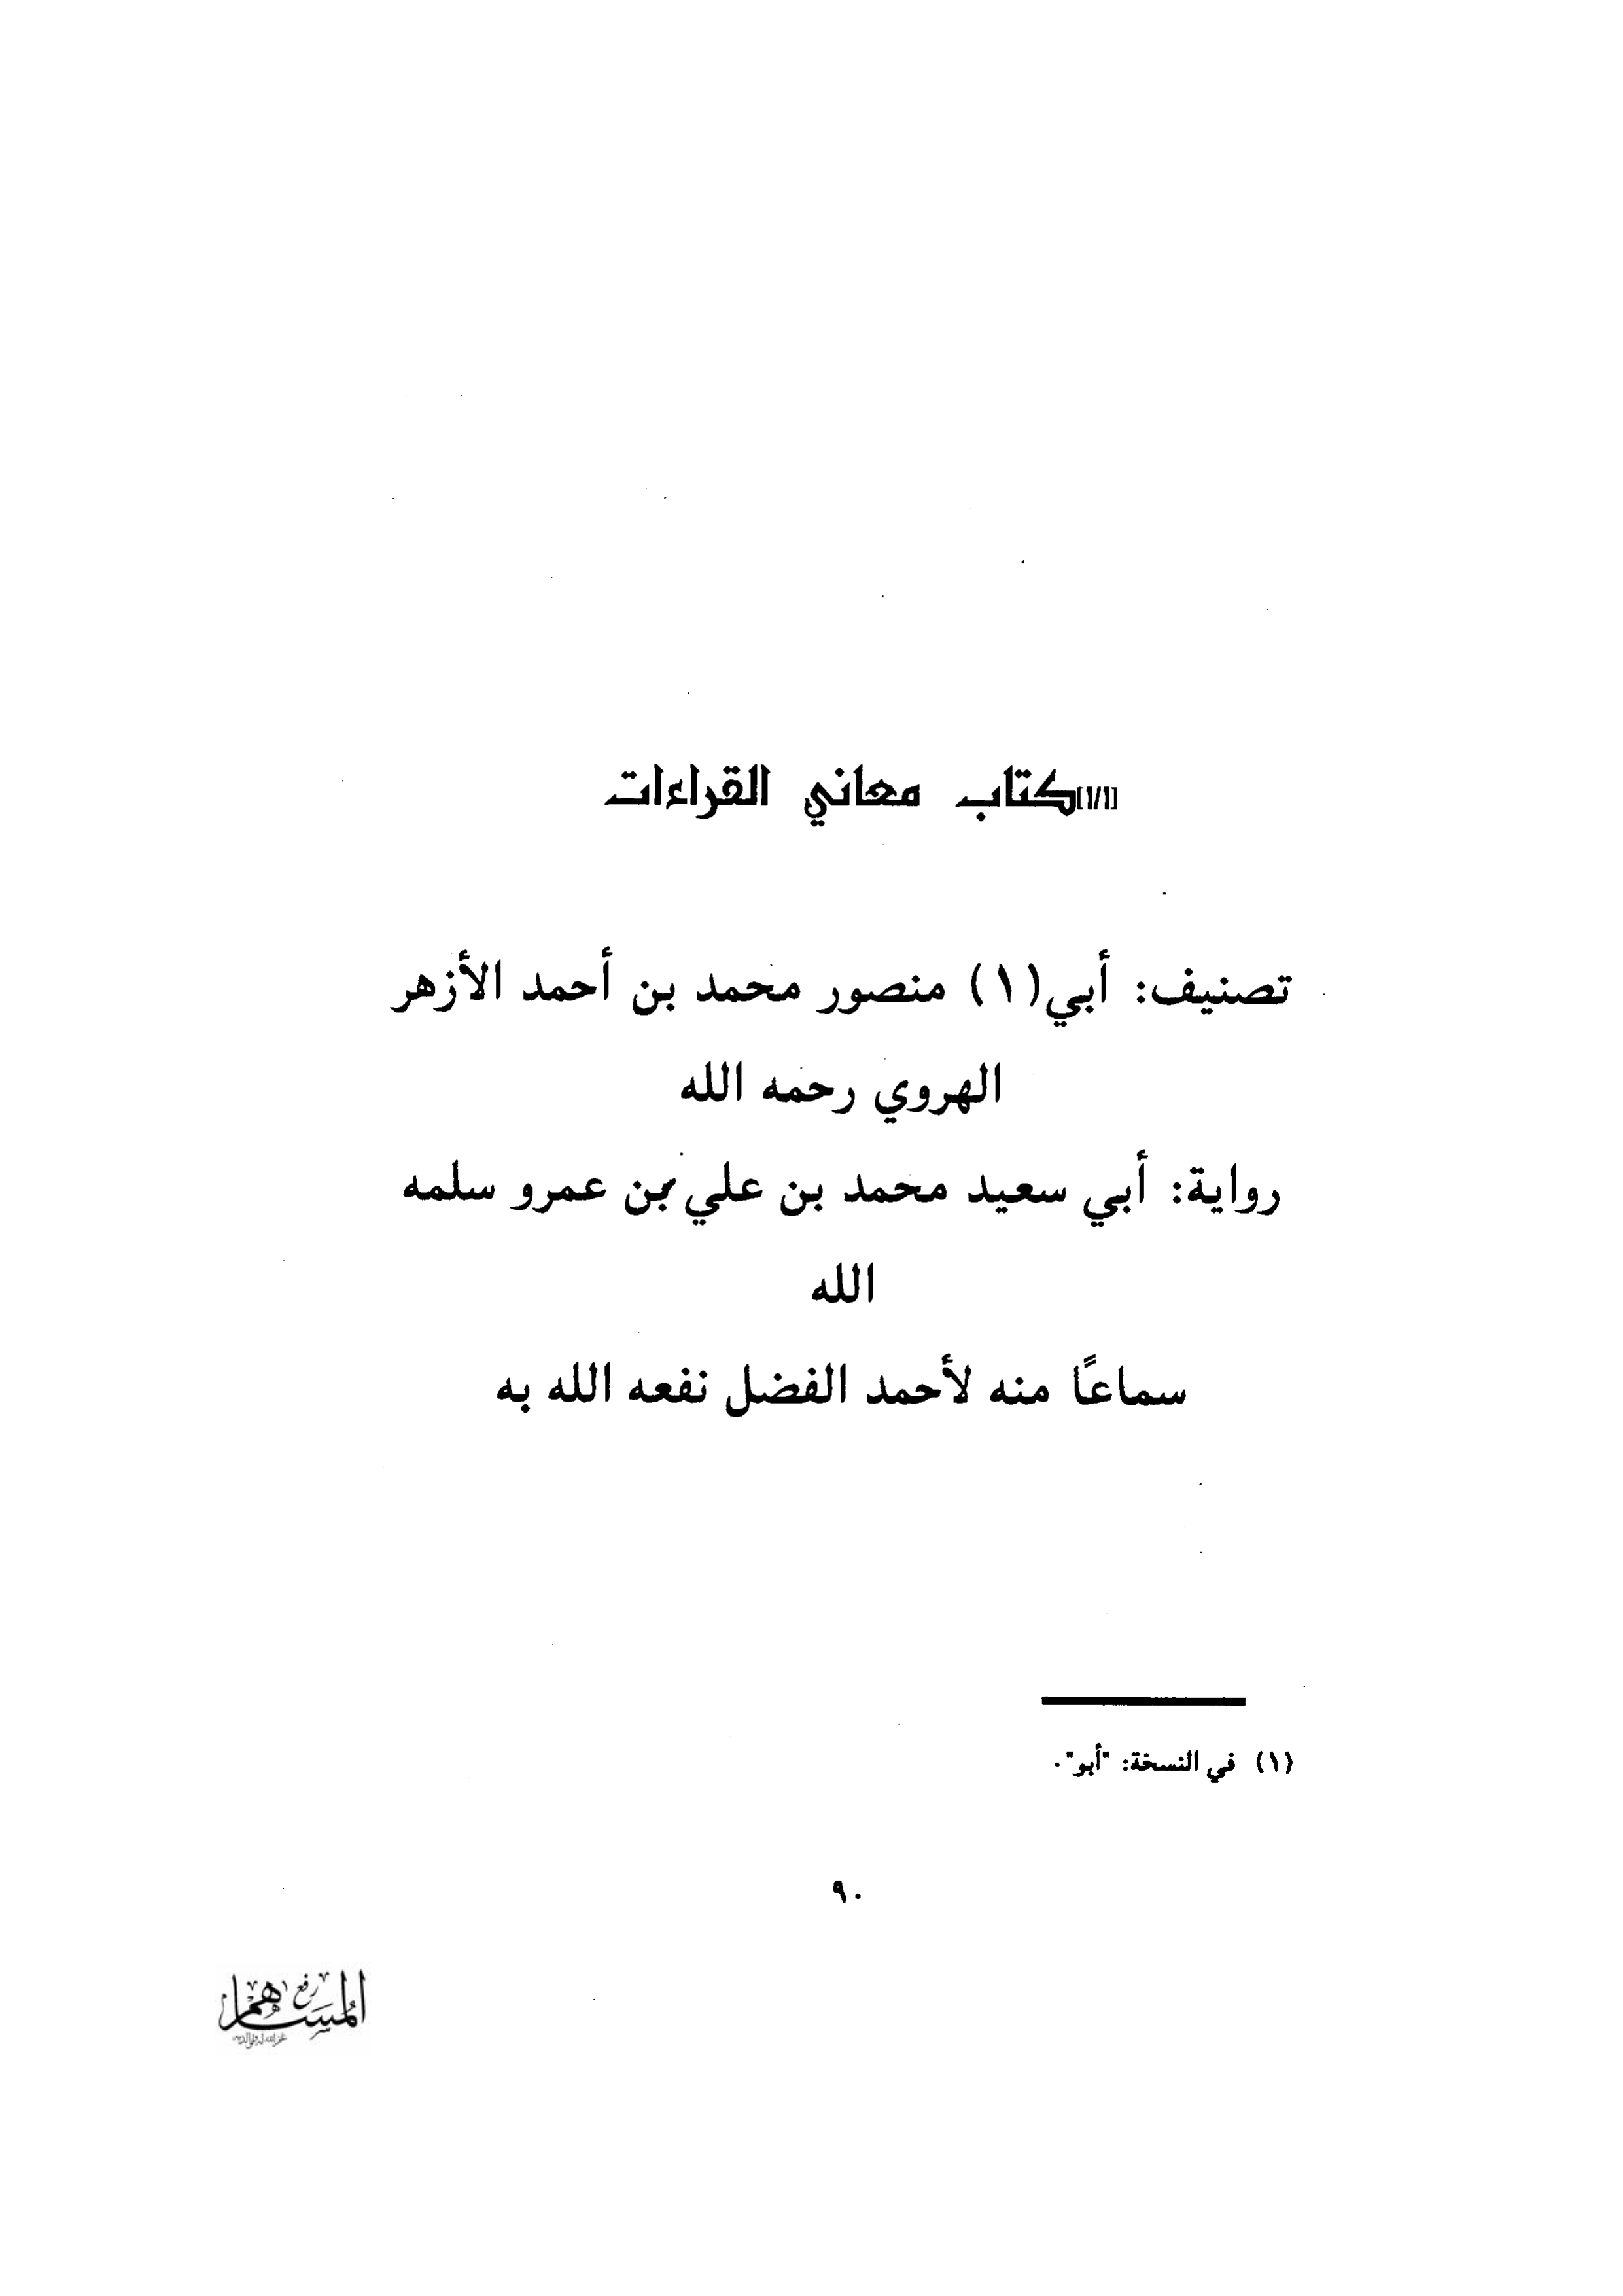 [1/1]كتاب معاني القراءات
تصنيف: أبي(١) منصور محمد بن أحمد الأزهر
الهروي رحمه الله
رواية: أبي سعيد محمد بن علي بن عمرو سلمه
الله
سماعًا منه لأحمد الفضل نفعه الله به
(١) في النسخة: "أبو".
٩٠
رفع
المساهم
غفر الله له ولوالديه